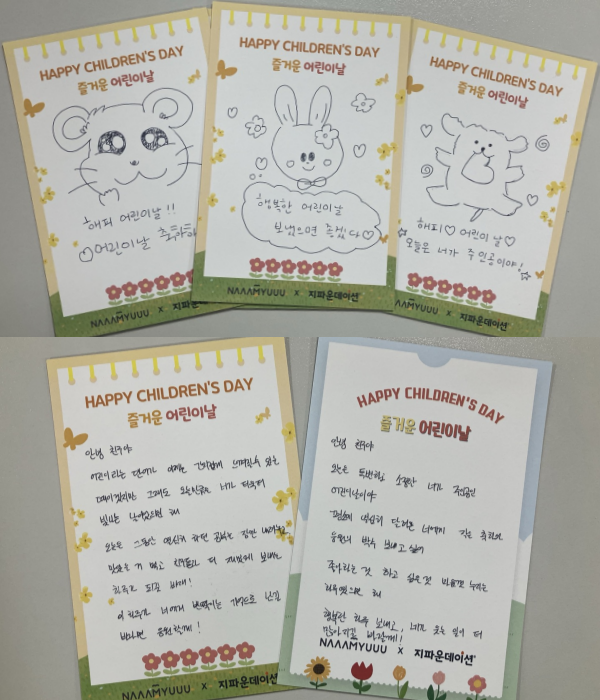 HAPPY CHILDREN'S DAY
즐거운 어린이날
해피 어린이날!!
어린이날 축하해
NAAAMYUUU x 지파운데이션
HAPPY CHILDREN'S DAY
즐거운 어린이날
행복한 어린이날
보냈으면 좋겠다♡
NAAAMYUUU x 지파운데이션
HAPPY CHILDREN'S DAY
즐거운 어린이날
해피♡ 어린이날♡
오늘은 너가 주인공이야!
NAAAMYUUU x 지파운데이션
HAPPY CHILDREN'S DAY
즐거운 어린이날
안녕 친구야
어린이라는 단어가
오늘만큼은 너가
빛나는 날이었으면 해
오늘은
맛있는 거 먹고 친구들과 더 재밌게 보내는
하루가 되길 바래!
이 하루가 너에게
바라며 응원할게!
NAAAMYUUU x 지파운데이션
HAPPY CHILDREN'S DAY
즐거운 어린이날
안녕 친구야
오늘은 특별하고 소중한 너가 주인공인
어린이날이야
너에게 작은 축하와
응원의 박수 보내고 싶어
좋아하는 것 하고 싶은 것 마음껏 누리는
하루였으면 해
행복한 하루 보내고, 너가 웃는 일이 더
많아지길 바랄게!
NAAAMYUUU x 지파운데이션